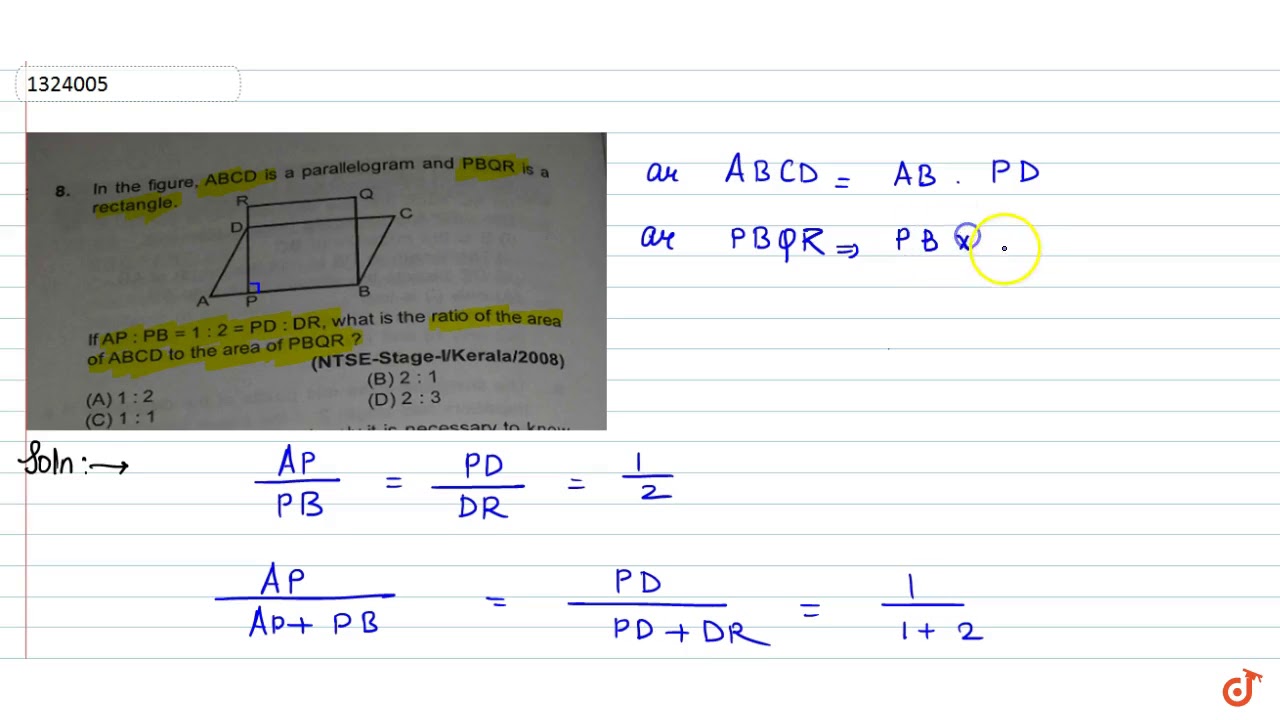 1324005
8. In the figure, ABCD is a parallelogram and PBQR is a
rectangle.
R
Q
D
C
A
P
B
If AP : PB = 1 : 2 = PD : DR, what is the ratio of the area
of ABCD to the area of PBQR ?
(NTSE-Stage-I/Kerala/2008)
(A) 1 : 2
(B) 2 : 1
(C) 1 : 1
(D) 2 : 3
it is necessary to know
ar ABCD = AB . PD
ar PBQR ⇒ PB × .
Soln :→
AP/PB = PD/DR = 1/2
AP/AP + PB = PD/PD + DR = 1/1 + 2